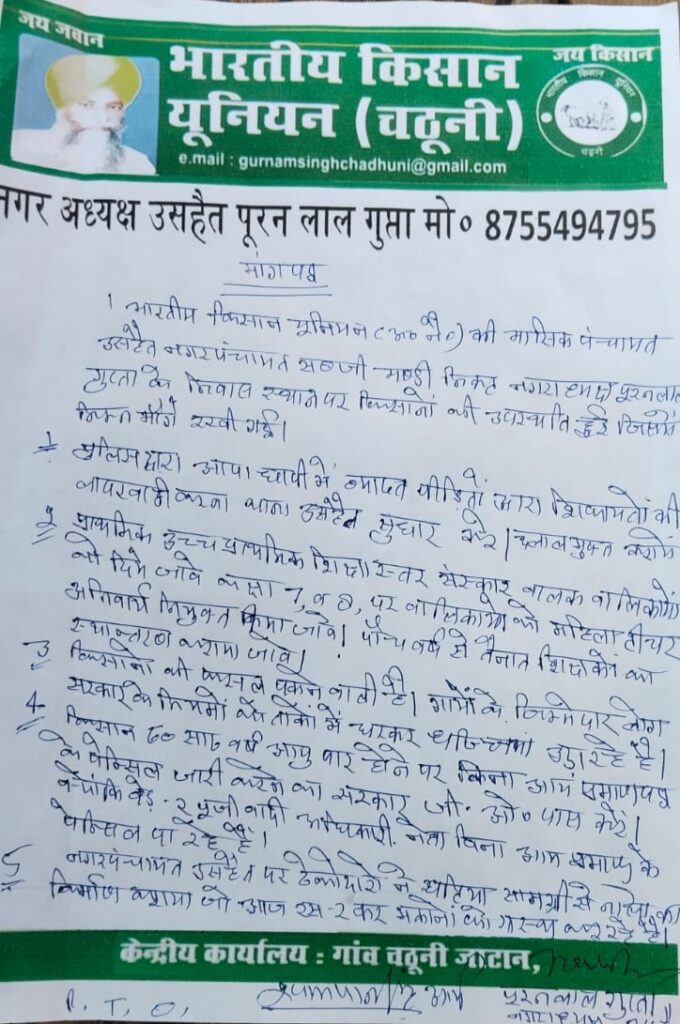 जय जवान
जय किसान
भारतीय किसान
यूनियन (चढूनी)
भारतीय किसान यूनियन
चढूनी
e.mail : gurnamsinghchadhuni@gmail.com
नगर अध्यक्ष उसहैत पूरन लाल गुप्ता मो० 8755494795
मांगपत्र
1 भारतीय किसान यूनियन (अ० नै०) की मासिक पंचायत
उसहैत नगरपंचायत सब्जी मण्डी निकट नगराध्यक्ष पूरनलाल
गुप्ता के निवास स्थान पर किसानों की उपस्थति हुई जिसमें
निम्न माँगें रखी गई।
1 पुलिस द्वारा आपा धापी में व्याप्त पीड़ितों द्वारा शिकायतों की
लापरवाही करना थाना उसहैत सुधार करे।
2 प्राथमिक उच्च प्राथमिक शिक्षा स्तर संस्कार बालक बालिकाओं
को दिये जावे कक्षा 7, व 8, पर बालिकाओं को महिला टीचर
अनिवार्य नियुक्त किया जावे। पाँच वर्ष से तैनात शिक्षकों का
स्थान्तरण कराया जावे।
3 किसानों की फसल पकने वाली है। गायों के जिम्मेदार लोग
सरकार के नियमों को में धरकर धज्जियां उड़ा रहे है।
4 किसान ६० साठ वर्ष आयु पार होने पर बिना आय प्रमाणपत्र
के पेन्सिल जारी करने का सरकार जी. ओ० पास करे।
क्योंकि बड़े-२ पूंजीवादी अधिकारी. नेता बिना आय प्रमाण के
पेन्सिल पा रहे हैं।
5 नगरपंचायत उसहैत पर ठेकेदारो ने घटिया सामग्री से का
निर्माण कराया जो आज रस-२ कर मकानों को कर रहे है।
केन्द्रीय कार्यालय : गांव चढूनी जाटान,
पूरनलाल गुप्ता
P. T. O,
नगराध्यक्ष